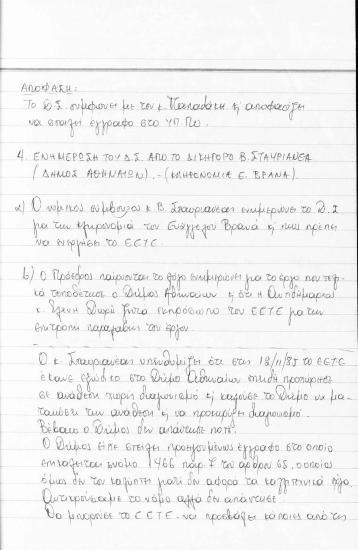 ΑΠΟΦΑΣΗ:
Το Δ.Σ. συμφωνεί με τον κ. Παπαδάκη κ' αποφασίζει
να στείλει έγγραφο στο ΥΠ.Πο.
4. ΕΝΗΜΕΡΩΣΗ ΤΟΥ Δ.Σ. ΑΠΟ ΤΟ ΔΙΚΗΓΟΡΟ Β. ΣΤΑΥΡΙΑΝΕΑ
(ΔΗΜΟΣ ΑΘΗΝΑΙΩΝ). - (ΚΛΗΡΟΝΟΜΙΑ Ε. ΒΡΑΝΑ).
α) Ο νομικός σύμβουλος κ. Β. Σταυριανέας ενημερώνει το Δ.Σ
για την κληρονομιά του Ευάγγελου Βρανά κ' πως πρέπει
να ενεργήσει το ΕΕΤΕ.
b) Ο Πρόεδρος παίρνοντας το λόγο ενημερώνει για το έργο που τελικά
τοποθέτησε ο Δήμος Αθηναίων κ' ότι η Αντιδήμαρχος
κ. Ελένη ζητά εκπρόσωπο του ΕΕΤΕ για την
επιτροπή παραλαβής του έργου.
Ο κ. Σταυριανέας υπενθυμίζει ότι στις 18/11/85 το ΕΕΤΕ
έκανε εξώδικο στο Δήμο Αθηναίων επειδή προχώρησε
σε ανάθεση χωρίς διαγωνισμό κ' καλούσε το Δήμο να ματαιώσει
την ανάθεση κ' να προκηρύξει διαγωνισμό.
Βέβαια ο Δήμος δεν απάντησε ποτέ.
Ο Δήμος είχε στείλει προηγούμενως έγγραφο στο οποίο
επικαλείται νόμο 1466 παρ. 7 του άρθρου 65, ο οποίος
όμως δεν τον καλύπτει γιατί δεν αφορά τα καλλιτεχνικά έργα.
Αντικρούσαμε το νόμο αλλά δεν απάντησε.
Θα μπορούσε το ΕΕΤΕ να προσβάλει κάποιες από τις